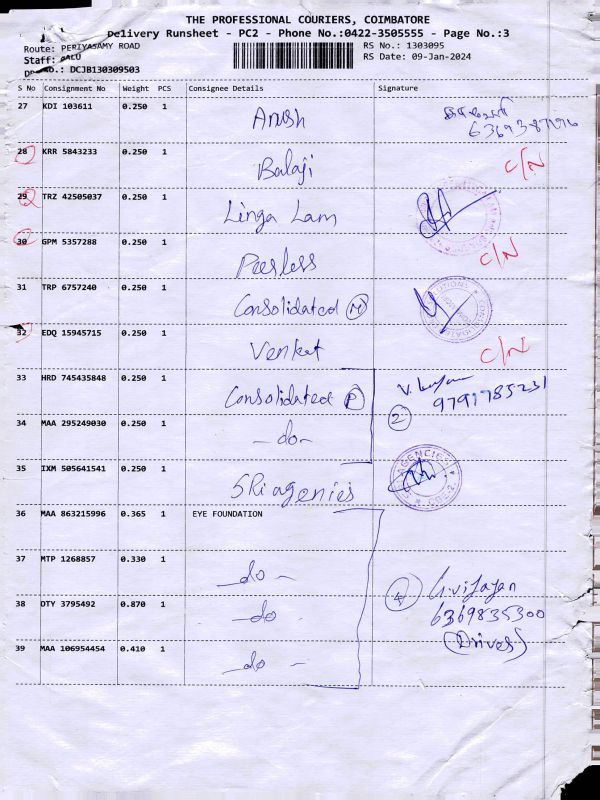 THE PROFESSIONAL COURIERS, COIMBATORE
Delivery Runsheet - PC2 - Phone No.:0422-3505555 - Page No.:3
Route: PERIYASAMY ROAD
RS No.: 1303095
Staff: BALU
RS Date: 09-Jan-2024
No.: DCJB130309503
S No Consignment No Weight PCS Consignee Details Signature
27 KDI 103611 0.250 1 Anush
28 KRR 5843233 0.250 1 Balaji C/N
29 TRZ 42505037 0.250 1 Linga Lam
30 GPM 5357288 0.250 1 Peerless C/N
31 TRP 6757240 0.250 1 Consolidated (M)
32 EDQ 15945715 0.250 1 Venket C/N
33 HRD 745435848 0.250 1 Consolidated (P) 9791785231
34 MAA 295249030 0.250 1 -do- 2
35 IXM 505641541 0.250 1 SRi agenies AGENCIES
36 MAA 863215996 0.365 1 EYE FOUNDATION
37 MTP 1268857 0.330 1 -do-
4 G.vijayan
38 OTY 3795492 0.870 1 -do- 6369835300
39 MAA 106954454 0.410 1 -do- (Driver)